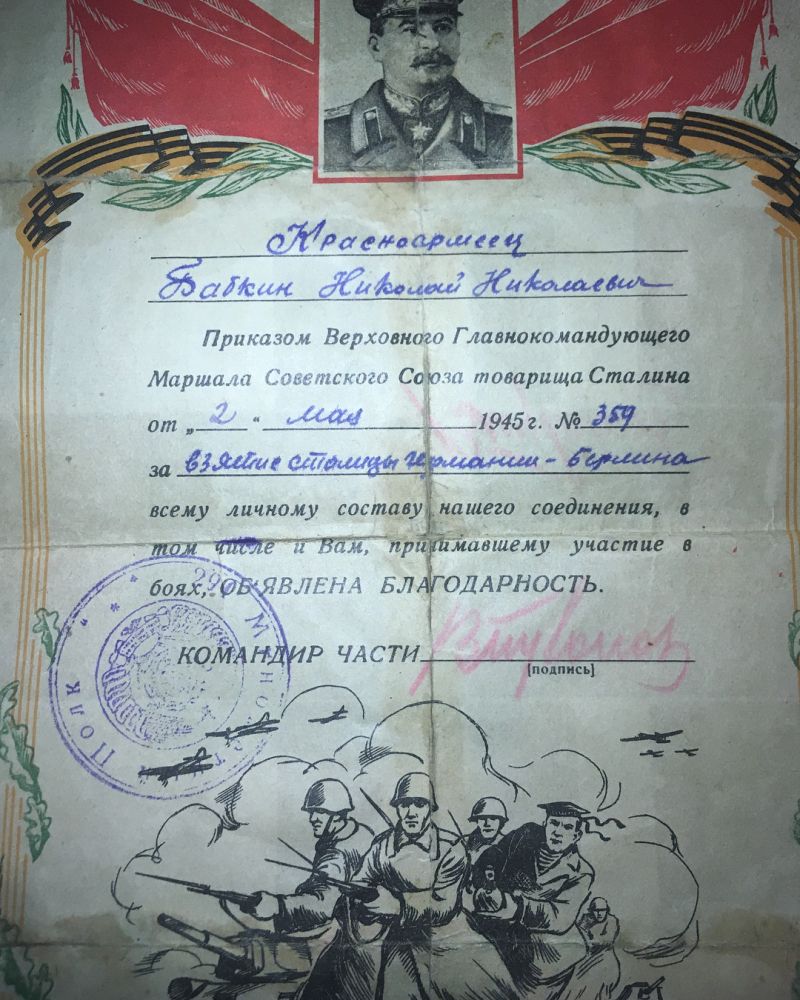 Красноармеец
Бабкин Николай Николаевич
Приказом Верховного Главнокомандующего
Маршала Советского Союза товарища Сталина
от „2“ мая 1945 г. № 359
за взятие столицы Германии - Берлина
всему личному составу нашего соединения, в
том числе и Вам, принимавшему участие в
боях, ОБ'ЯВЛЕНА БЛАГОДАРНОСТЬ.
КОМАНДИР ЧАСТИ
[подпись]
Полк